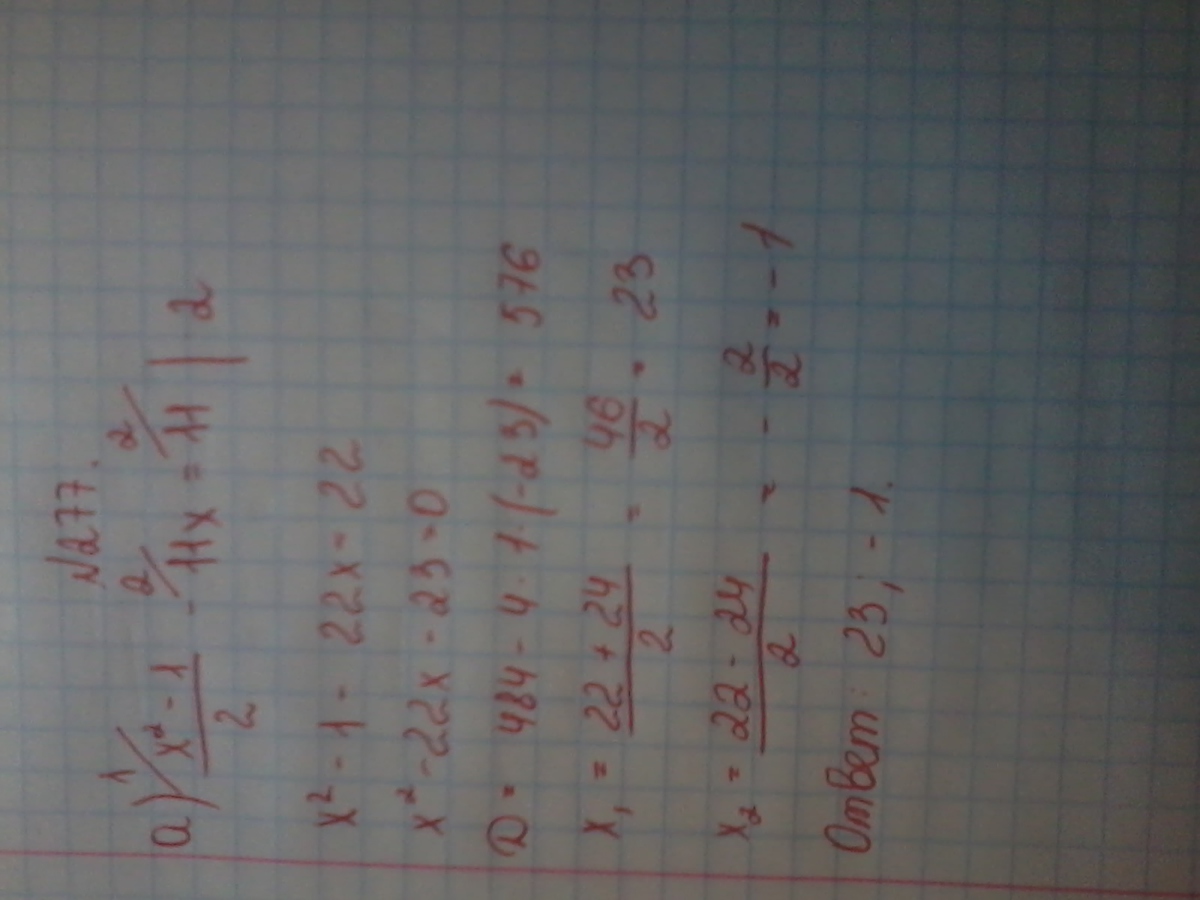 №277.
а) 1/ (x² - 1)/2 - 2/ 11x = 2/ 11 | 2
x² - 1 - 22x = 22
x² - 22x - 23 = 0
D = 484 - 4 · 1 · (-23) = 576
x₁ = (22 + 24)/2 = 46/2 = 23
x₂ = (22 - 24)/2 = - 2/2 = - 1
Ответ: 23; - 1.